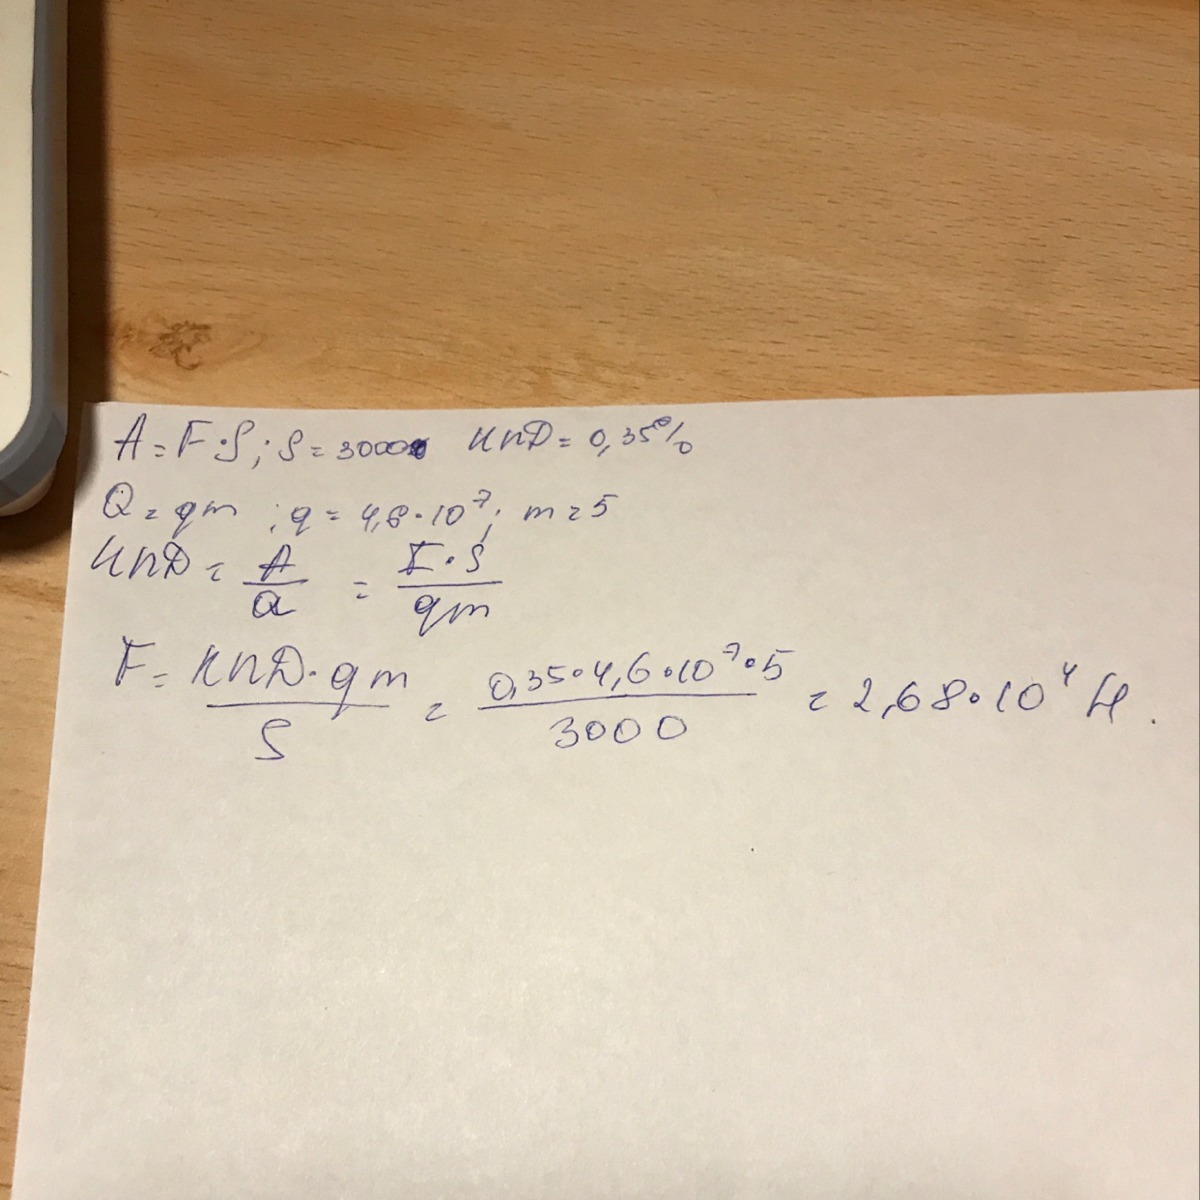 A = F·S; S = 3000 КПД = 0,35%
Q = qm ; q = 4,6·10⁷; m = 5
КПД = A/Q = F·S/qm
F = КПД·qm/S = 0,35·4,6·10⁷·5/3000 = 2,68·10⁴ Н.